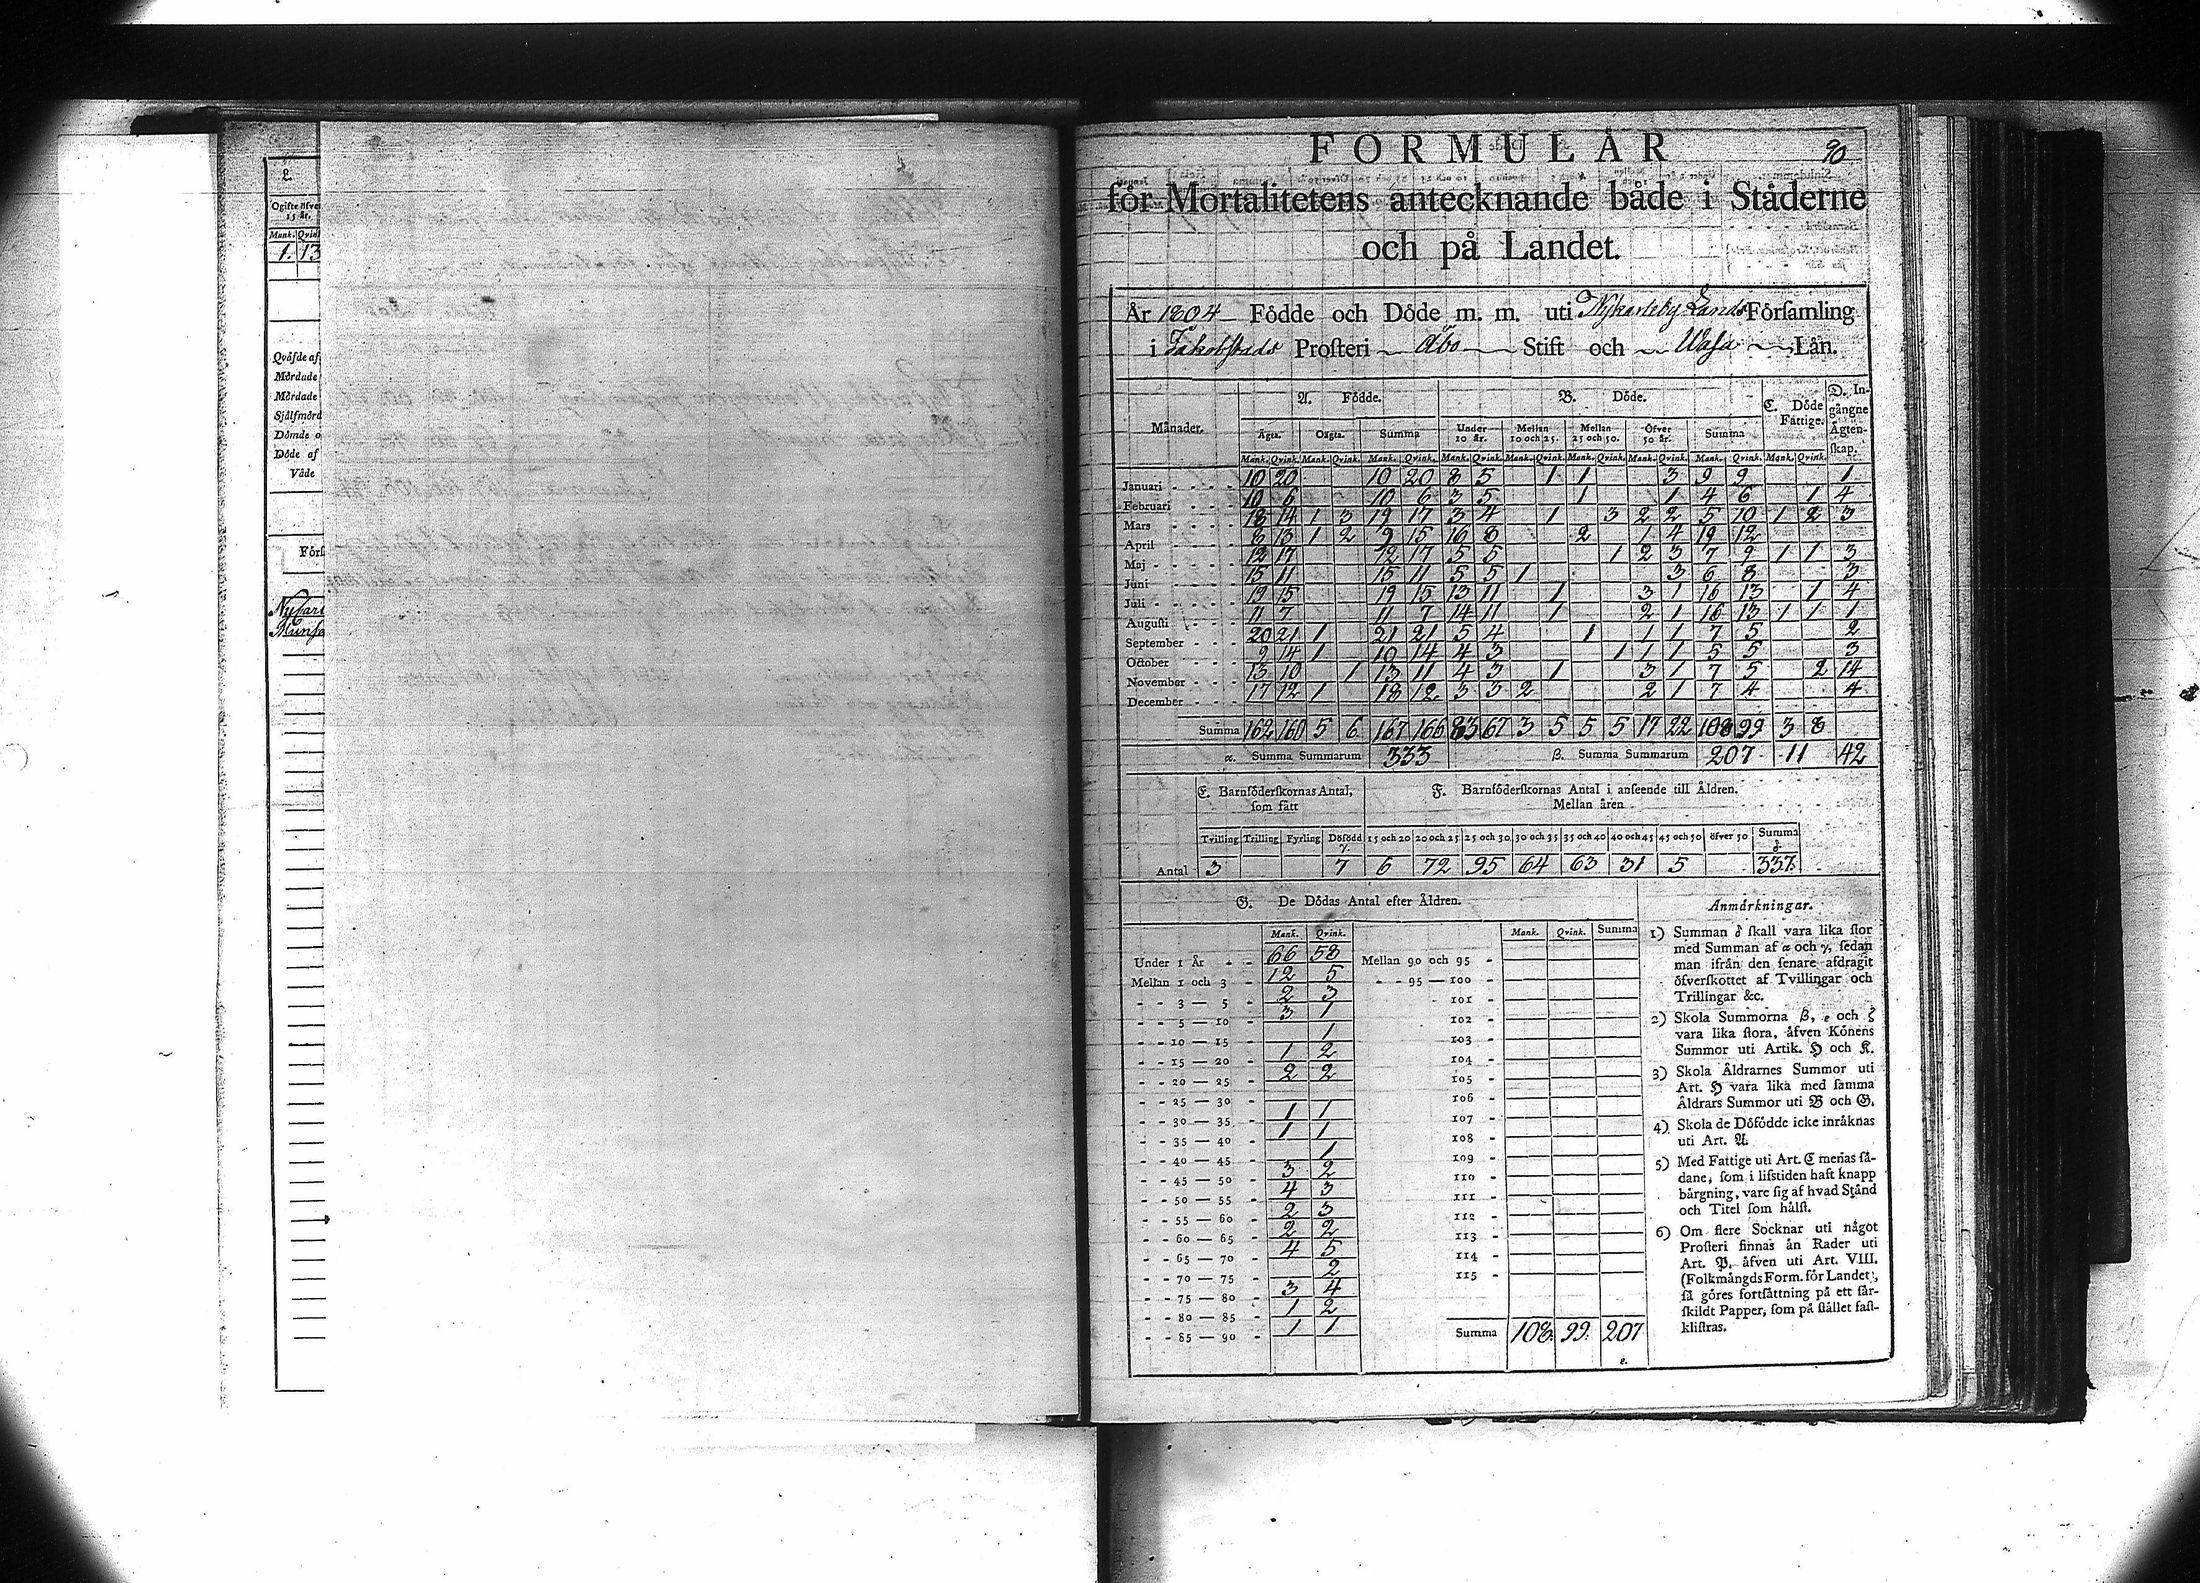 2.
Ogifte öfver
15 år.
Mank. Qvin
1. 13
Qväfde af
Mördade
Mördade
Självmörd
Dömde o
Döde af
Våde
Förs
Nykarl
Munsa
90
FORMULÄR
för Mortalitetens antecknande både i Städerne
och på Landet.
År 1804 Födde och Döde m. m. uti Nykarleby Lands Församling
i Jakobstads Prosteri Åbo Stift och Wasa Län.
Månader. A. Födde. B. Döde. C. Döde Fattige. D. Ingångne Ägtenskap.
Ägta. Oägta. Summa Under 10 år. Mellan 10 och 25. Mellan 25 och 50. Öfver 50 år. Summa
Mank. Qvink. Mank. Qvink. Mank. Qvink. Mank. Qvink. Mank. Qvink. Mank. Qvink. Mank. Qvink. Mank. Qvink. Mank. Qvink.
Januari 10 20 10 20 8 5 1 1 3 9 9 1
Februari 10 6 10 6 3 5 1 1 4 6 1 4
Mars 18 14 1 3 19 17 3 4 1 3 2 2 5 10 1 2 3
April 8 13 1 2 9 15 16 8 2 1 4 19 12
Maj 12 17 12 17 5 5 1 2 3 7 9 1 1 3
Juni 15 11 15 11 5 5 1 3 6 8 3
Juli 19 15 19 15 13 11 1 3 1 16 13 1 4
Augusti 11 7 11 7 14 11 1 2 1 16 13 1 1 1
September 20 21 1 21 21 5 4 1 1 1 7 5 2
October 9 14 1 10 14 4 3 1 1 1 5 5 3
November 13 10 1 13 11 4 3 1 3 1 7 5 2 14
December 17 12 1 18 12 3 3 2 2 1 7 4 4
Summa 162 160 5 6 167 166 83 67 3 5 5 5 17 22 108 99 3 8
α. Summa Summarum 333 β. Summa Summarum 207 11 42
E. Barnföderskornas Antal, som fått
F. Barnföderskornas Antal i anseende till Åldren.
Mellan åren
Tvilling Trilling Fyrling Dödfödd γ. 15 och 20 20 och 25 25 och 30 30 och 35 35 och 40 40 och 45 45 och 50 öfver 50 Summa δ
Antal 3 7 6 72 95 64 63 31 5 337.
G. De Dödas Antal efter Åldren.
Mank. Qvink. Mank. Qvink. Summa
Under 1 År 66 58 Mellan 90 och 95
Mellan 1 och 3 12 5 95 — 100
3 — 5 2 3 101
5 — 10 3 1 102
10 — 15 1 103
15 — 20 1 2 104
20 — 25 2 2 105
25 — 30 106
30 — 35 1 1 107
35 — 40 1 1 108
40 — 45 1 109
45 — 50 3 2 110
50 — 55 4 3 111
55 — 60 2 3 112
60 — 65 2 2 113
65 — 70 4 5 114
70 — 75 2 115
75 — 80 3 4
80 — 85 1 2
85 — 90 1 1 Summa 108. 99. 207
ε.
Anmärkningar.
1) Summan δ skall vara lika stor
med Summan af α och γ, sedan
man ifrån den senare afdragit
öfverskottet af Tvillingar och
Trillingar &c.
2) Skola Summorna β, ε och ζ
vara lika stora, äfven Könens
Summor uti Artik. H och K.
3) Skola Åldrarnes Summor uti
Art. H vara lika med samma
Åldrars Summor uti B och G.
4) Skola de Döfödde icke inräknas
uti Art. A.
5) Med Fattige uti Art. C menas så-
dane, som i lifstiden haft knapp
bärgning, vare sig af hvad Stånd
och Titel som hälst.
6) Om flere Socknar uti något
Prosteri finnas än Rader uti
Art. P, äfven uti Art. VIII.
(Folkmängds Form. för Landet),
så göres fortsättning på ett sär-
skildt Papper, som på stället fast-
klistras.